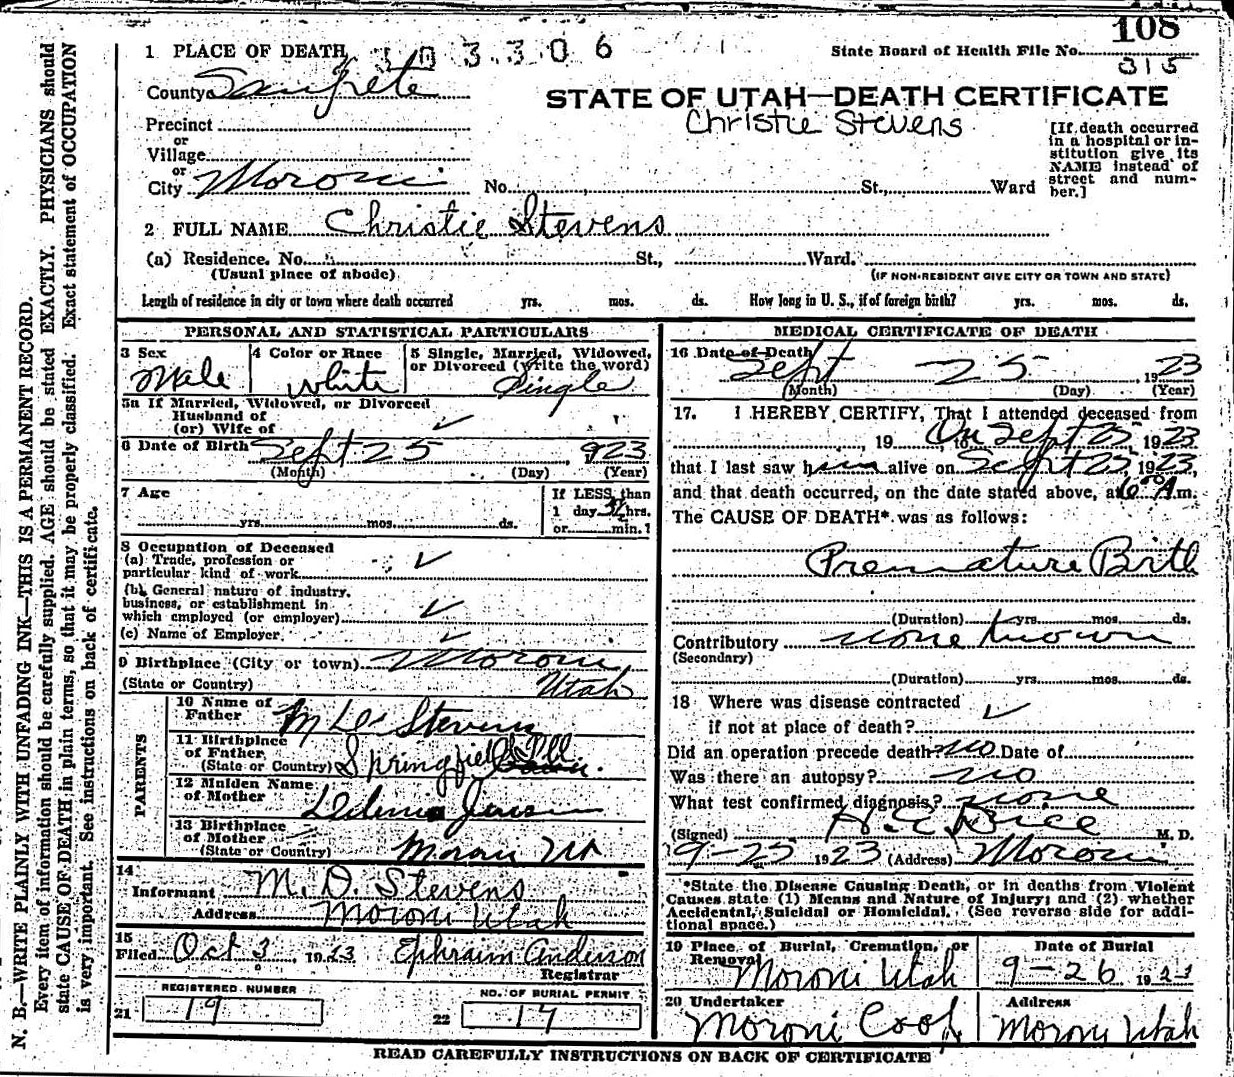 108
1 PLACE OF DEATH 103306 State Board of Health File No. 315
County Sanpete
STATE OF UTAH—DEATH CERTIFICATE
Christie Stevens
Precinct
or
Village
or
City Moroni No. St., Ward
[If death occurred
in a hospital or in-
stitution give its
NAME instead of
street and num-
ber.]
2 FULL NAME Christie Stevens
(a) Residence. No. St., Ward.
(Usual place of abode) (IF NON-RESIDENT GIVE CITY OR TOWN AND STATE)
Length of residence in city or town where death occurred yrs. mos. ds. How long in U. S., if of foreign birth? yrs. mos. ds.
PERSONAL AND STATISTICAL PARTICULARS
3 Sex
Male
4 Color or Race
White
5 Single, Married, Widowed,
or Divorced (write the word)
Single
5a If Married, Widowed, or Divorced
Husband of
(or) Wife of
6 Date of Birth Sept 25 923
(Month) (Day) (Year)
7 Age
yrs. mos. ds.
If LESS than
1 day hrs.
or min.?
8 Occupation of Deceased
(a) Trade, profession or
particular kind of work
(b) General nature of industry,
business, or establishment in
which employed (or employer)
(c) Name of Employer
9 Birthplace (City or town) Moroni
(State or Country) Utah
PARENTS
10 Name of
Father M D Stevens
11 Birthplace
of Father
(State or Country) Springfield Ill
12 Maiden Name
of Mother
13 Birthplace
of Mother
(State or Country) Moroni Ut
14
Informant M. D. Stevens
Address Moroni Utah
15
Filed Oct 3 1923 Ephraim Anderson
Registrar
REGISTERED NUMBER
21 19
NO. OF BURIAL PERMIT
22 17
MEDICAL CERTIFICATE OF DEATH
16 Date of Death
Sept 25 1923
(Month) (Day) (Year)
17. I HEREBY CERTIFY, That I attended deceased from
, 19 to On Sept 25, 1923
that I last saw him alive on Sept 25, 1923,
and that death occurred, on the date stated above, at 6 A.m.
The CAUSE OF DEATH* was as follows:
Premature Birth
(Duration) yrs. mos. ds.
Contributory none known
(Secondary)
(Duration) yrs. mos. ds.
18 Where was disease contracted
if not at place of death?
Did an operation precede death? no Date of
Was there an autopsy? no
What test confirmed diagnosis? none
(Signed) M. D.
9-25 1923 (Address) Moroni
*State the Disease Causing Death, or in deaths from Violent
Causes state (1) Means and Nature of Injury; and (2) whether
Accidental, Suicidal or Homicidal. (See reverse side for addi-
tional space.)
19 Place of Burial, Cremation, or
Removal
Moroni Utah
Date of Burial
9-26 1923
20 Undertaker
Moroni Coop
Address
Moroni Utah
READ CAREFULLY INSTRUCTIONS ON BACK OF CERTIFICATE
N. B.—WRITE PLAINLY WITH UNFADING INK—THIS IS A PERMANENT RECORD.
Every item of information should be carefully supplied. AGE should be stated EXACTLY. PHYSICIANS should
state CAUSE OF DEATH in plain terms, so that it may be properly classified. Exact statement of OCCUPATION
is very important. See instructions on back of certificate.